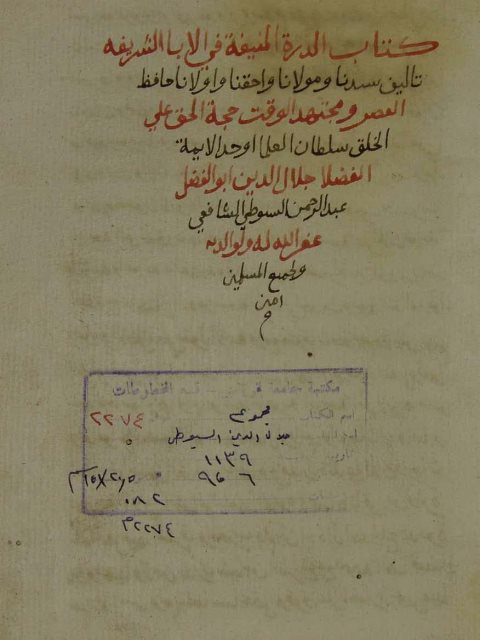 كتاب الدرة المنيفة في الابا الشريفه
تاليف سيدنا ومولانا واحقنا واولانا حافظ
العصر ومجتهد الوقت حجة الحق علي
الخلق سلطان العلما اوحد الايمة
الفضلا جلال الدين ابو الفضل
عبد الرحمن السيوطي الشافعي
غفر الله له ولوالديه
ولجميع المسلمين
امين
م
مكتبة جامعة قسم المخطوطات
٢٢٧٤
اسم الكتاب مجموع
جلال الدين السيوطي
١١٣٩
٩٦ ٦
٠٨٢
م٢٢٧٤